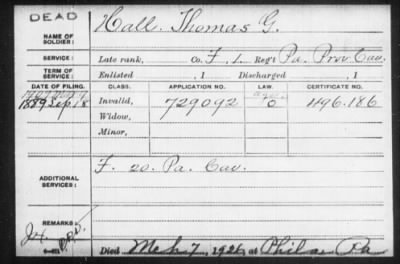 DEAD
NAME OF SOLDIER: Hall, Thomas G.
SERVICE: Late rank, Co. F, 1 Reg't Pa. Prov. Cav.
TERM OF SERVICE: Enlisted , 1 Discharged , 1
DATE OF FILING. CLASS. APPLICATION NO. LAW. CERTIFICATE NO.
1889 Sep 18 Invalid, 729092 496.186
Widow,
Minor,
ADDITIONAL SERVICES: F. 20. Pa. Cav.
REMARKS:
Died Mch 7, 1926, at Phila Pa